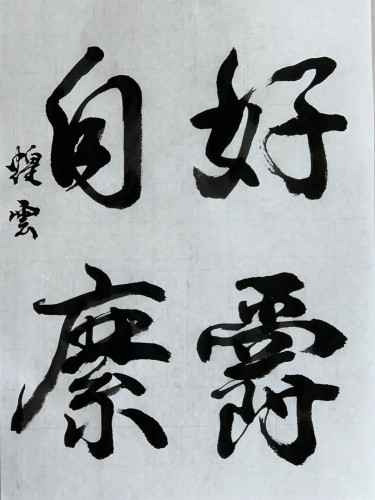 好爵
自縻
煌雲